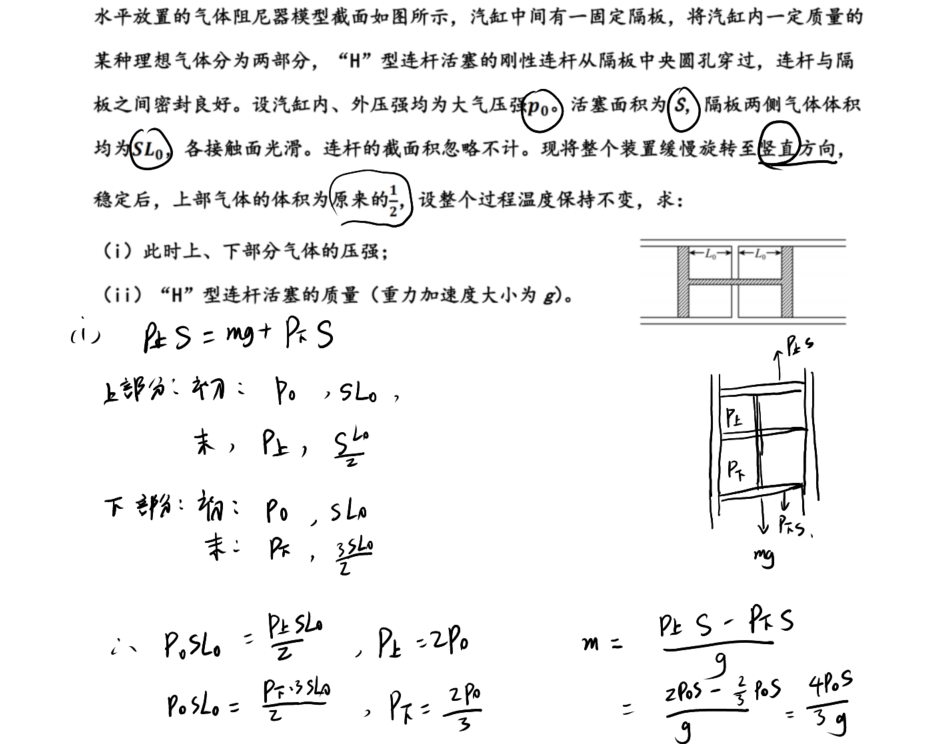 水平放置的气体阻尼器模型截面如图所示，汽缸中间有一固定隔板，将汽缸内一定质量的
某种理想气体分为两部分，“H”型连杆活塞的刚性连杆从隔板中央圆孔穿过，连杆与隔
板之间密封良好。设汽缸内、外压强均为大气压强p₀。活塞面积为S，隔板两侧气体体积
均为SL₀，各接触面光滑。连杆的截面积忽略不计。现将整个装置缓慢旋转至竖直方向，
稳定后，上部气体的体积为原来的1/2，设整个过程温度保持不变，求：
（i）此时上、下部分气体的压强；
（ii）“H”型连杆活塞的质量（重力加速度大小为 g）。
L₀ L₀
(i) P上S = mg + P下S
上部分：初： P₀ ，SL₀，
末， P上， SL₀/2
下部分：初： P₀ ，SL₀
末： P下， 3SL₀/2
P上S
P上
P下
P下S.
mg
∴ P₀SL₀ = P上SL₀/2 ，P上 = 2P₀
P₀SL₀ = P下·3SL₀/2 ，P下 = 2P₀/3
m = (P上S - P下S)/g
= (2P₀S - 2/3 P₀S)/g = 4P₀S/3g